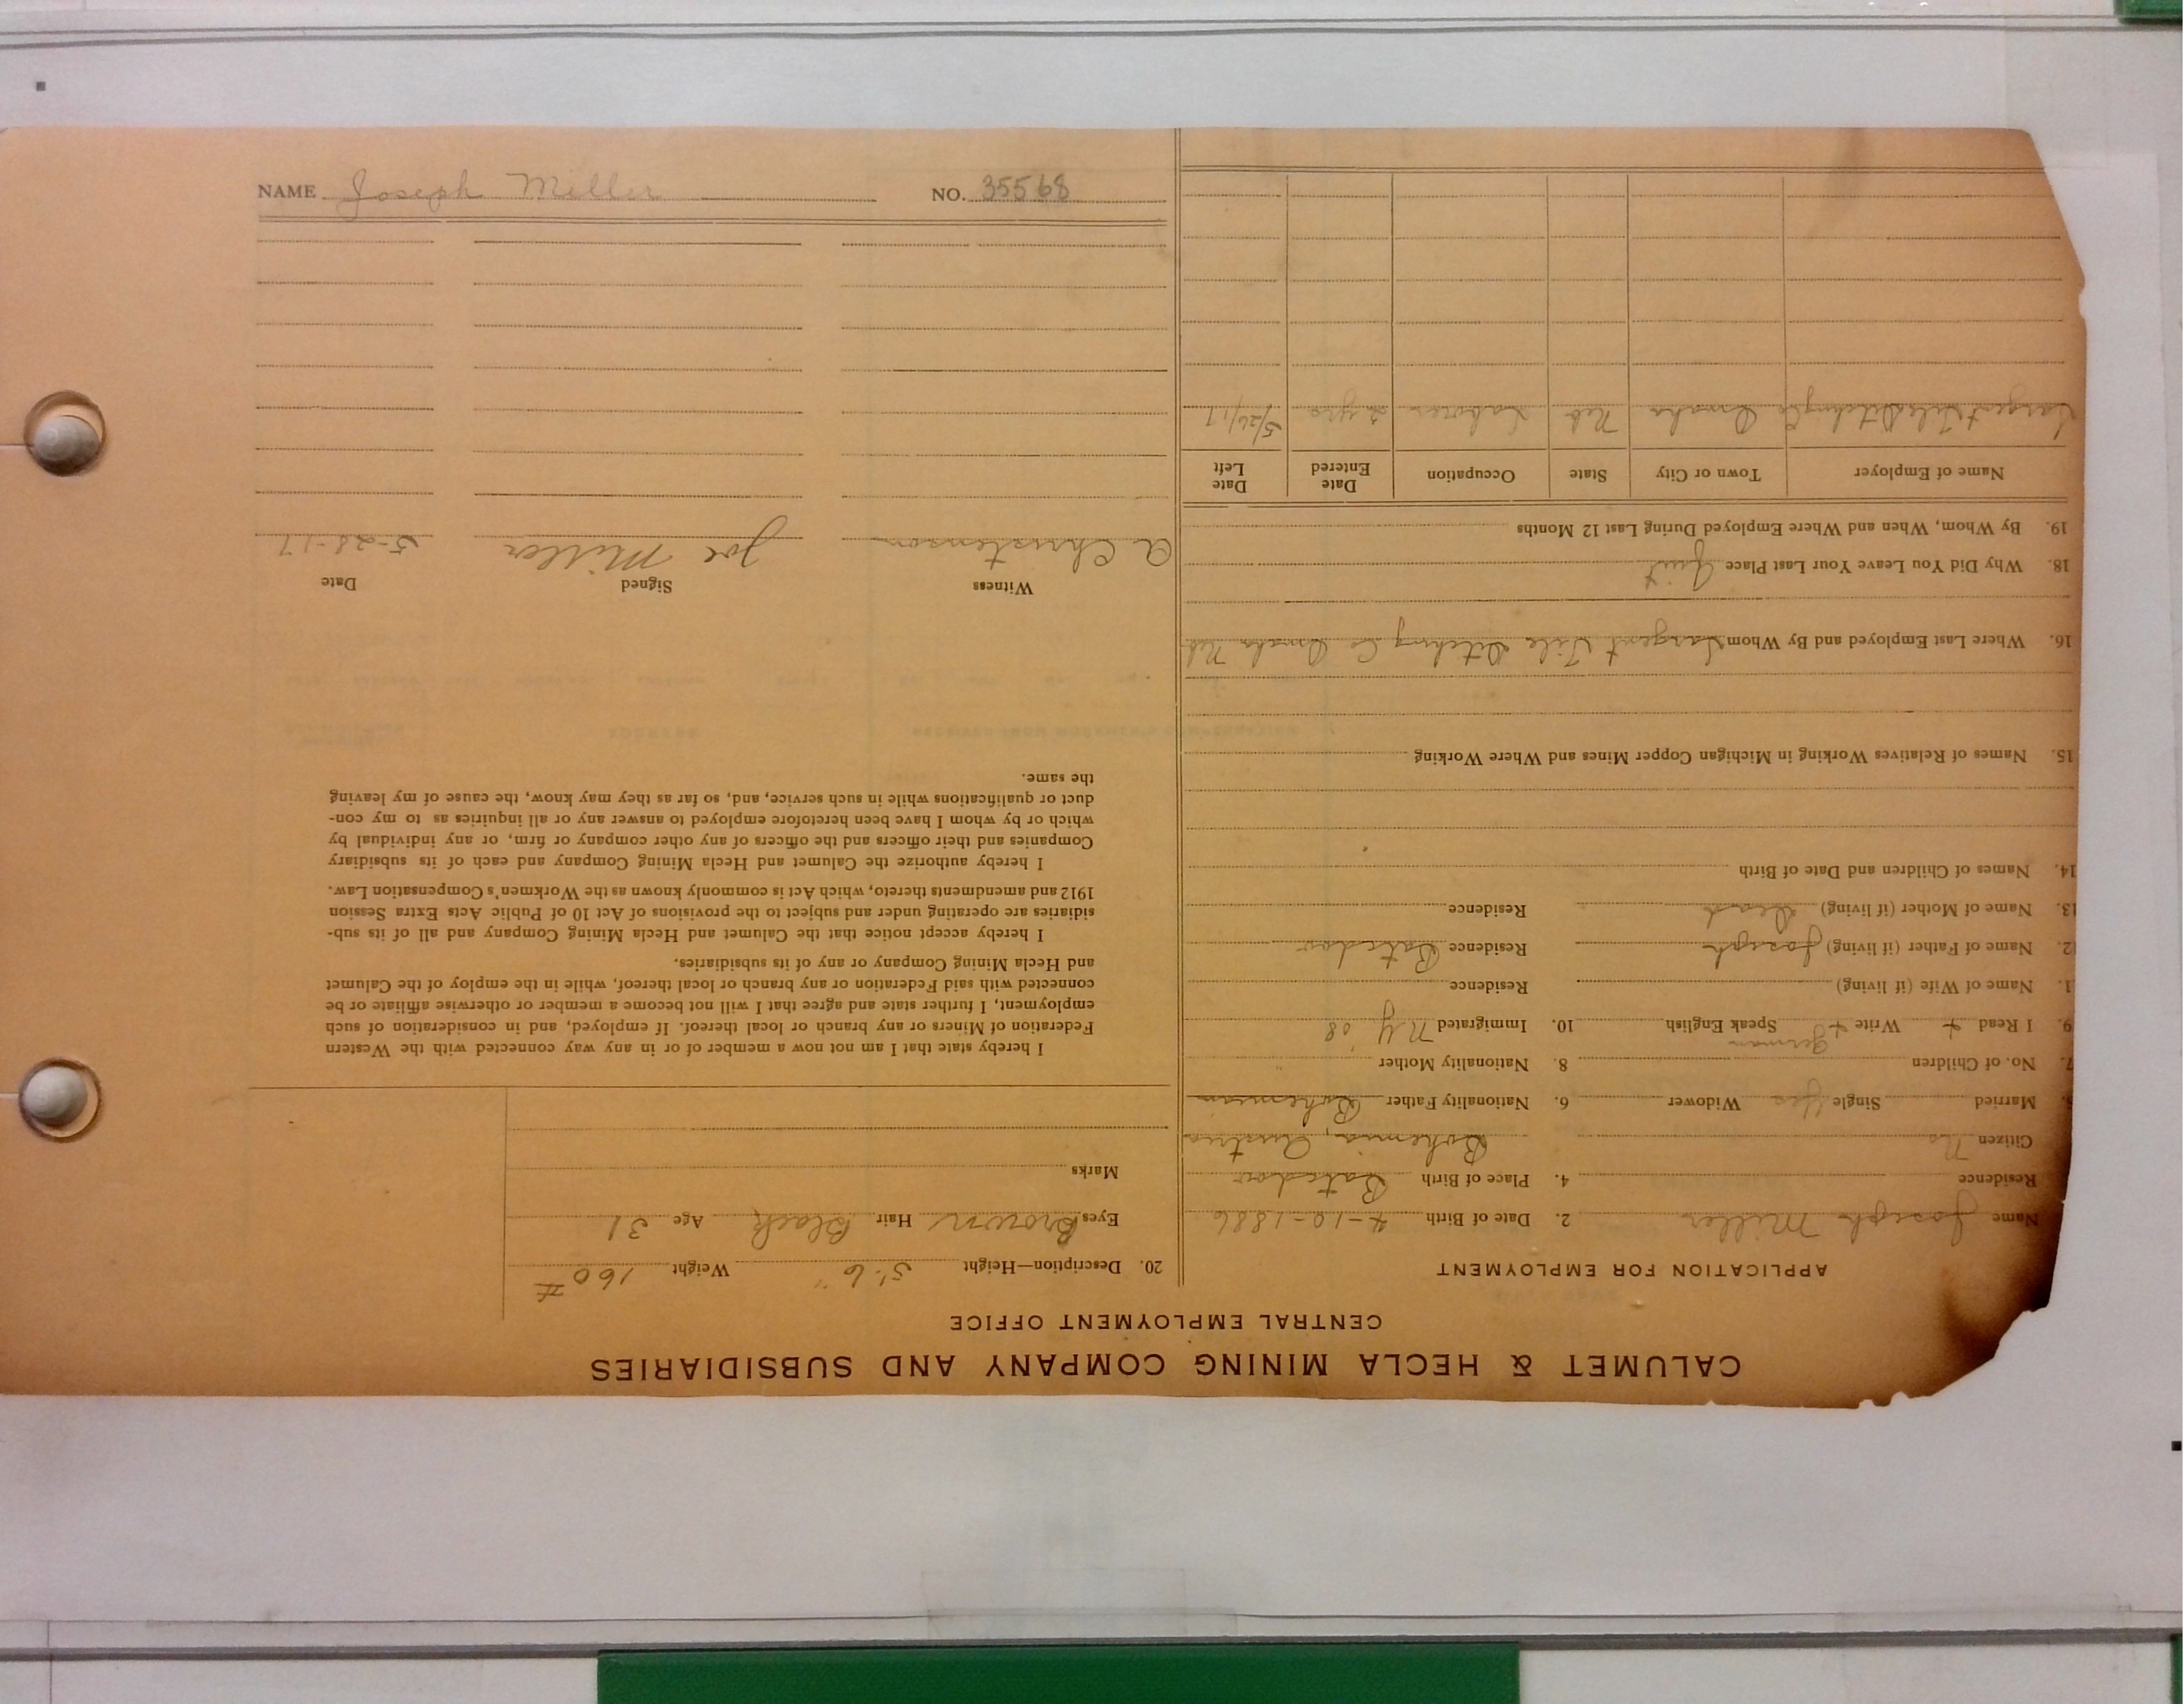 CALUMET & HECLA MINING COMPANY AND SUBSIDIARIES
CENTRAL EMPLOYMENT OFFICE
APPLICATION FOR EMPLOYMENT
Name Joseph Miller 2. Date of Birth 4-10-1886
Residence 4. Place of Birth
Citizen No Bohemia, Austria
Married Single Yes Widower 6. Nationality Father Bohemian
7. No. of Children 8. Nationality Mother "
German
9. I Read + Write + Speak English 10. Immigrated N Y '08
1. Name of Wife (if living) Residence
2. Name of Father (if living) Joseph Residence
13. Name of Mother (if living) Dead Residence
14. Names of Children and Date of Birth
15. Names of Relatives Working in Michigan Copper Mines and Where Working
16. Where Last Employed and By Whom Sargent Tile Ditching Co Omaha Neb
18. Why Did You Leave Your Last Place Quit
19. By Whom, When and Where Employed During Last 12 Months
Name of Employer Town or City State Occupation Date Entered Date Left
Sargent Tile Ditching Co Omaha Neb Laborer 2 yrs 5/26/17
20. Description—Height 5' 6" Weight 160 #
Eyes Brown Hair Black Age 31
Marks
I hereby state that I am not now a member of or in any way connected with the Western
Federation of Miners or any branch or local thereof. If employed, and in consideration of such
employment, I further state and agree that I will not become a member or otherwise affiliate or be
connected with said Federation or any branch or local thereof, while in the employ of the Calumet
and Hecla Mining Company or any of its subsidiaries.
I hereby accept notice that the Calumet and Hecla Mining Company and all of its sub-
sidiaries are operating under and subject to the provisions of Act 10 of Public Acts Extra Session
1912 and amendments thereto, which Act is commonly known as the Workmen's Compensation Law.
I hereby authorize the Calumet and Hecla Mining Company and each of its subsidiary
Companies and their officers and the officers of any other company or firm, or any individual by
which or by whom I have been heretofore employed to answer any or all inquiries as to my con-
duct or qualifications while in such service, and, so far as they may know, the cause of my leaving
the same.
Witness Signed Date
A Christenson Joe Miller 5-28-17
NAME Joseph Miller NO. 35568